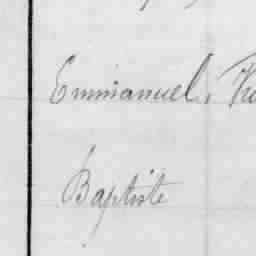 Emmanuel,
Baptiste